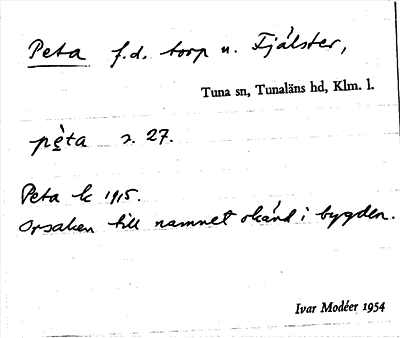 Peta f.d. torp u. Fjälster,
Tuna sn, Tunaläns hd, Klm. l.
pė̱̀ta s. 27.
Peta k 1915.
Orsaken till namnet okänd i bygden.
Ivar Modéer 1954